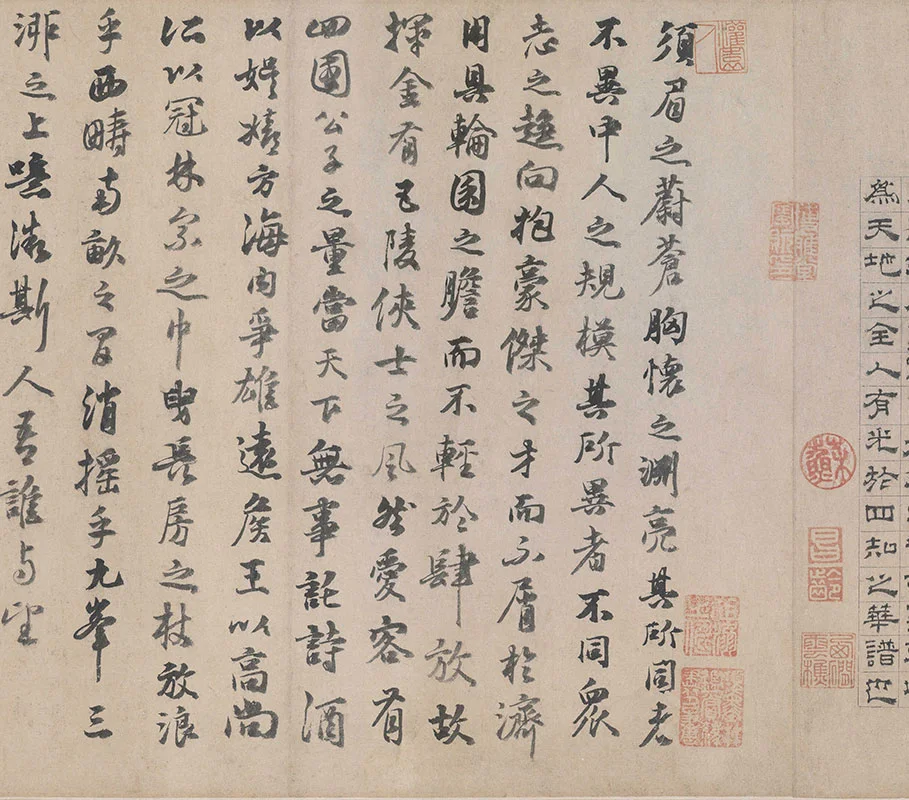 為天地之全人有光於四知之華譜也
昌齡
須眉之蔚蒼胸懷之淵亮其所同者
不異中人之規模其所異者不同眾
志之趨向抱豪傑之才而不屑於濟
用具輪囷之膽而不輕於肆放故
揮金有五陵俠士之風然愛客有
四國公子之量當天下無事託詩酒
以娛嬉方海內爭雄遠矦王以高尚
所以冠林宗之巾曳長房之杖放浪
乎西疇南畝之間消搖乎九峯三
泖之上噫微斯人吾誰與望